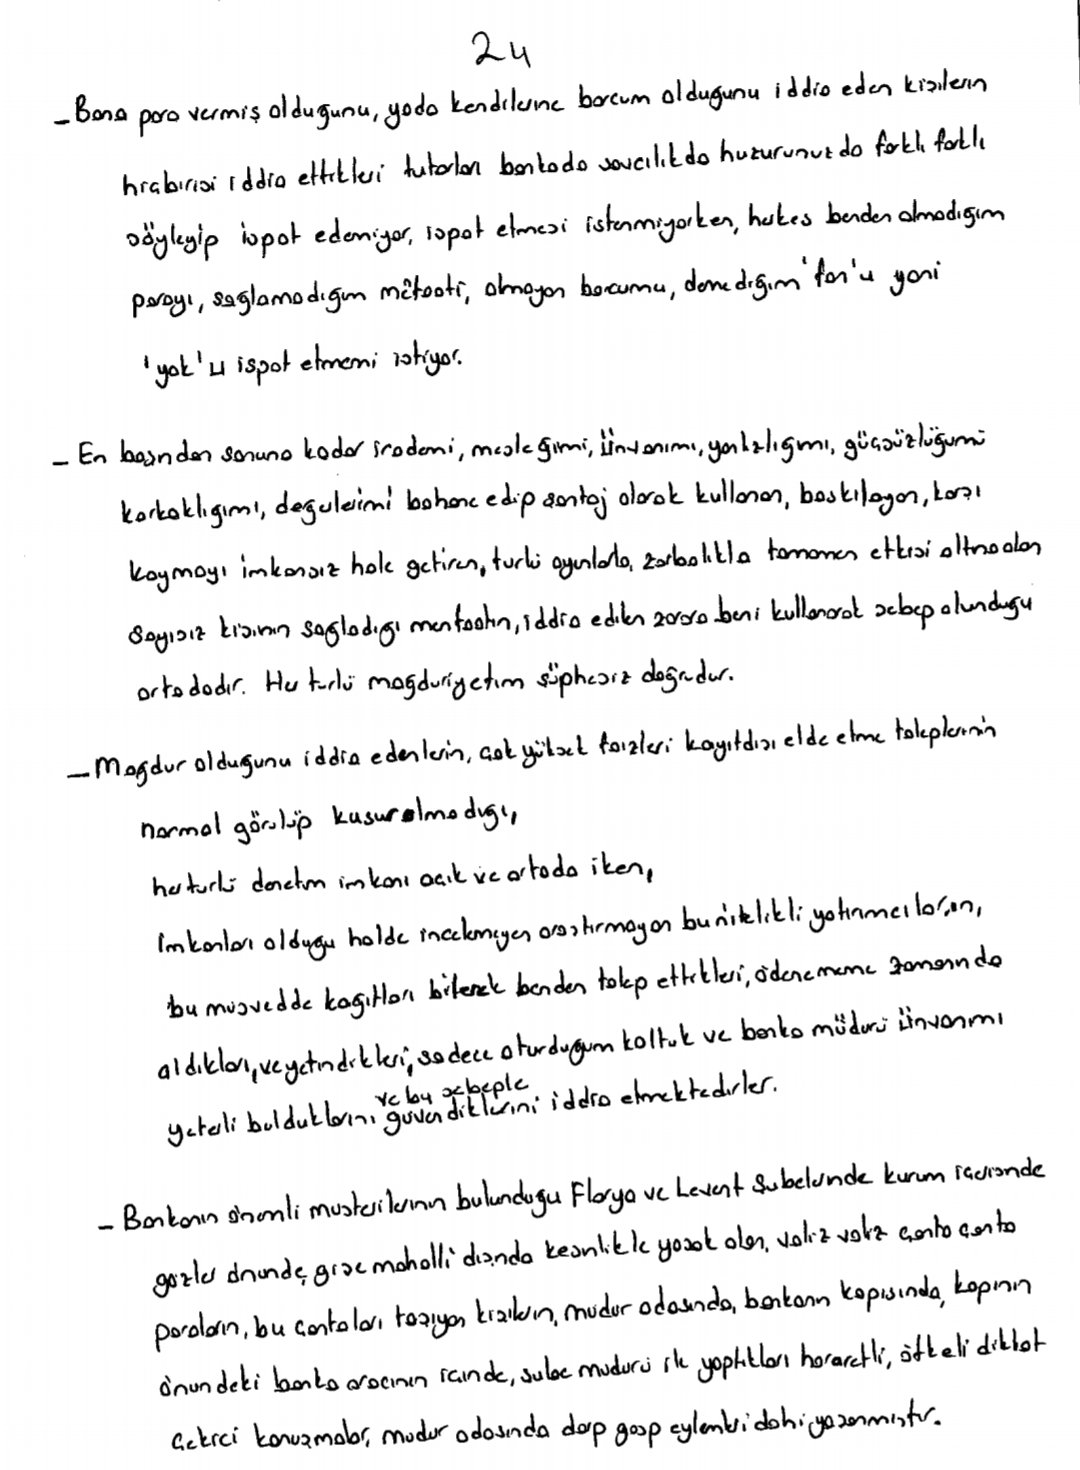 24
- Bana para vermiş olduğunu, yada kendilerine borcum olduğunu iddia eden kişilerin
hiçbirisi iddia ettikleri tutarları bankada savcılıkda huzurunuzda farklı farklı
söyleyip ispat edemiyor, ispat etmesi istenmiyorken, herkes benden almadığım
parayı, sağlamadığım menfaati, olmayan borcumu, denediğim 'fon'u yani
'yok'u ispat etmemi istiyor.
- En başından sonuna kadar irademi, mesleğimi, ünvanımı, yanlızlığımı, güçsüzlüğümü
korkaklığımı, değerlerimi bahane edip şantaj olarak kullanan, baskılayan, karşı
koymayı imkansız hale getiren, türlü oyunlarla, zorbalıkla tamamen etkisi altına alan
sayısız kişinin sağladığı menfaatin, iddia edilen zarara beni kullanarak sebep olunduğu
ortadadır. Her türlü mağduriyetim şüphesiz doğrudur.
- Mağdur olduğunu iddia edenlerin, çok yüksek faizleri kayıtdışı elde etme taleplerinin
normal görülüp kusur olmadığı,
her türlü denetim imkanı açık ve ortada iken,
imkanları olduğu halde incelemeyen araştırmayan bu nitelikli yatırımcıların,
bu müsvedde kağıtları bilerek benden talep ettikleri, ödenememe zamanında
aldıkları, ve yetindikleri, sadece oturduğum koltuk ve banka müdürü ünvanımı
yeterli bulduklarını ve bu sebeple güvendiklerini iddia etmektedirler.
- Bankanın önemli müşterilerinin bulunduğu Florya ve Levent Şubelerinde kurum içerisinde
gözler önünde, gişe mahalli dışında kesinlikle yasak olan, valiz valiz çanta çanta
paraların, bu çantaları taşıyan kişilerin, müdür odasında, bankanın kapısında, kapının
önündeki banka aracının içinde, şube müdürü ile yaptıkları hararetli, öfkeli dikkat
çekici konuşmalar, müdür odasında darp gasp eylemleri dahi yaşanmıştır.